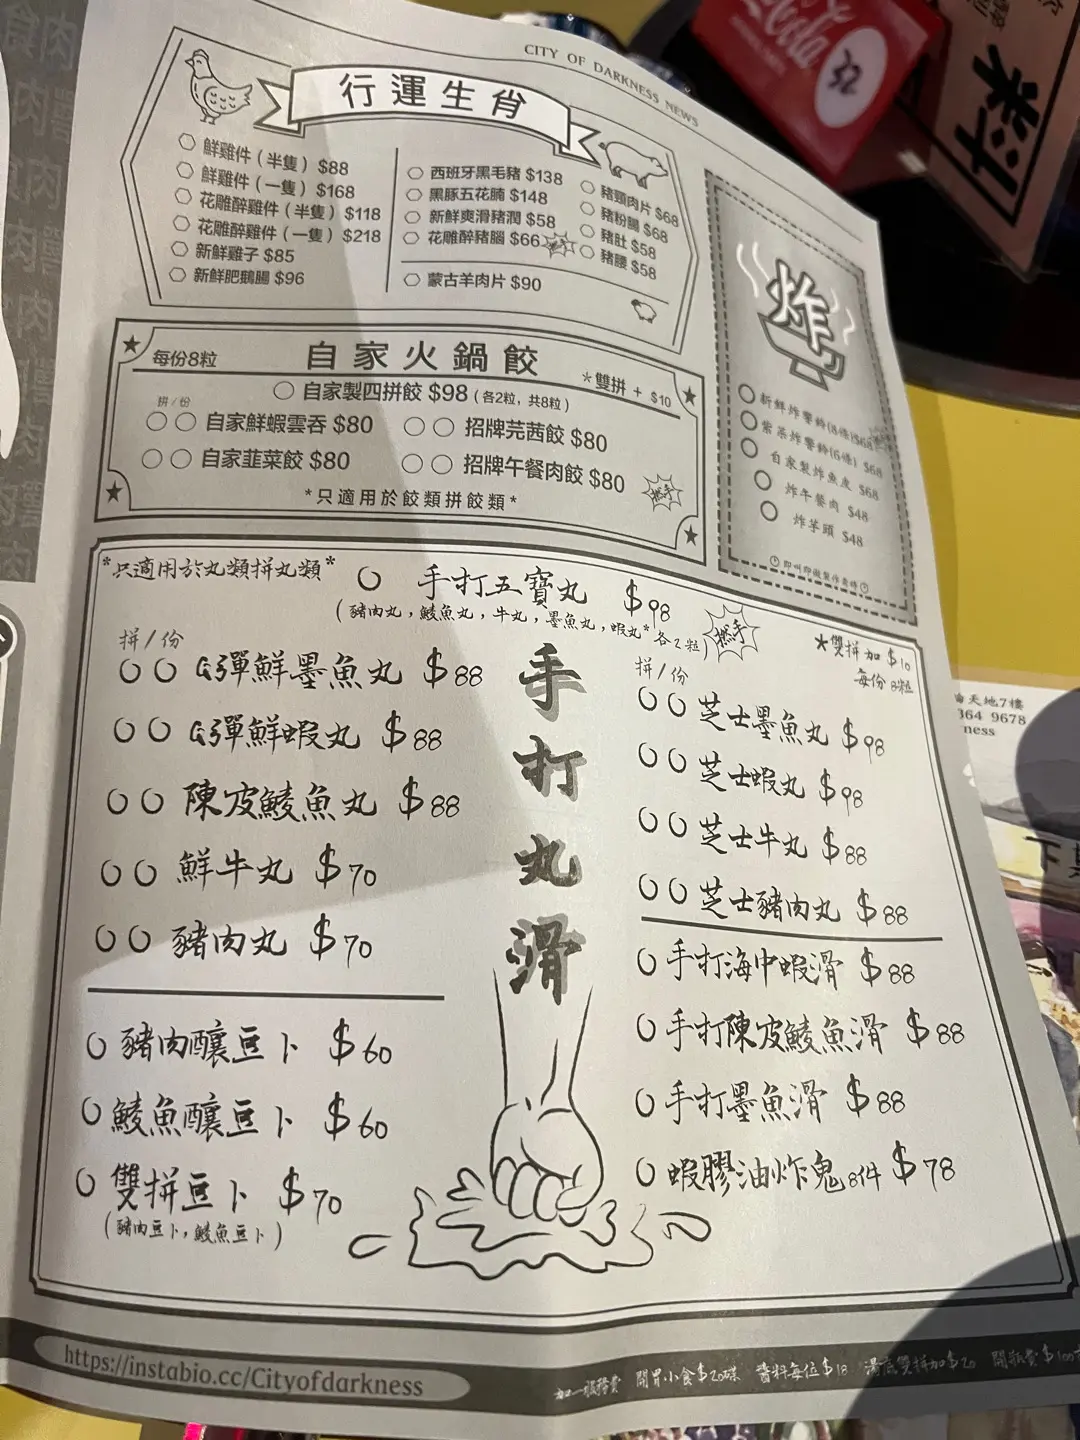 CITY OF DARKNESS NEWS
行運生肖
鮮雞件(半隻) $88
鮮雞件(一隻) $168
花雕醉雞件(半隻) $118
花雕醉雞件(一隻) $218
新鮮雞子 $85
新鮮肥鵝腸 $96
西班牙黑毛豬 $138
黑豚五花腩 $148
新鮮爽滑豬潤 $58
花雕醉豬腦 $66
蒙古羊肉片 $90
豬頸肉片 $68
豬粉腸 $68
豬肚 $58
豬腰 $58
炸
新鮮炸響鈴(8條)$68
紫菜炸響鈴(6條) $68
自家製炸魚皮 $68
炸午餐肉 $48
炸芋頭 $48
即叫即做製作需時
每份8粒
自家火鍋餃
*雙拼 + $10
自家製四拼餃 $98 (各2粒，共8粒)
拼/份
自家鮮蝦雲吞 $80
招牌芫茜餃 $80
自家韮菜餃 $80
招牌午餐肉餃 $80
*只適用於餃類拼餃類*
*只適用於丸類拼丸類*
手打五寶丸 $98
(豬肉丸，鯪魚丸，牛丸，墨魚丸，蝦丸*各2粒)
*雙拼加 $10
每份 8粒
手打丸滑
拼/份
G彈鮮墨魚丸 $88
G彈鮮蝦丸 $88
陳皮鯪魚丸 $88
鮮牛丸 $70
豬肉丸 $70
豬肉釀豆卜 $60
鯪魚釀豆卜 $60
雙拼豆卜 $70
(豬肉豆卜，鯪魚豆卜)
拼/份
芝士墨魚丸 $98
芝士蝦丸 $98
芝士牛丸 $88
芝士豬肉丸 $88
手打海中蝦滑 $88
手打陳皮鯪魚滑 $88
手打墨魚滑 $88
蝦膠油炸鬼8件 $78
https://instabio.cc/Cityofdarkness
加一服務費 開胃小食$20碟 醬料每位$18 湯底雙拼加$20 開瓶費$100
天地7樓
364 9678
ness
料